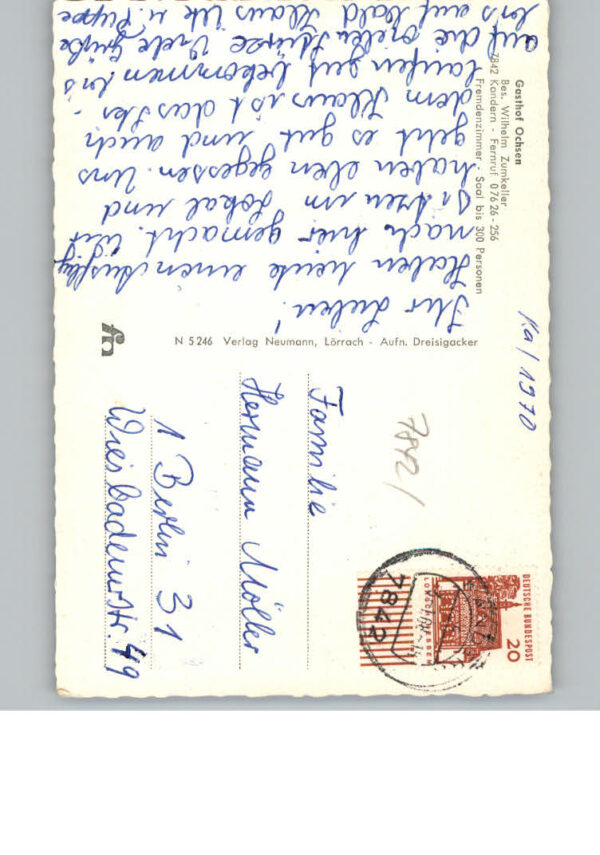 Gasthof Ochsen
Bes. Wilhelm Zumkeller
7842 Kandern - Fernruf 0 76 26 - 256
Fremdenzimmer - Saal bis 300 Personen
Ihr Lieben!
Haben heute einen Ausflug
nach hier gemacht. Wir
sitzen im Lokal und
haben eben gegessen. Uns
geht es gut und auch
dem Klaus ist das Ski-
laufen gut bekommen bis
auf die vielen Stürze Viele Grüße
bis auf bald Klaus Ilk u. Puppe
N 5246 Verlag Neumann, Lörrach - Aufn. Dreisigacker
fn
Ka/1970
7842/
Familie
Hermann Möller
1 Berlin 31
Wiesbadener Str. 49
DEUTSCHE BUNDESPOST
20
7842